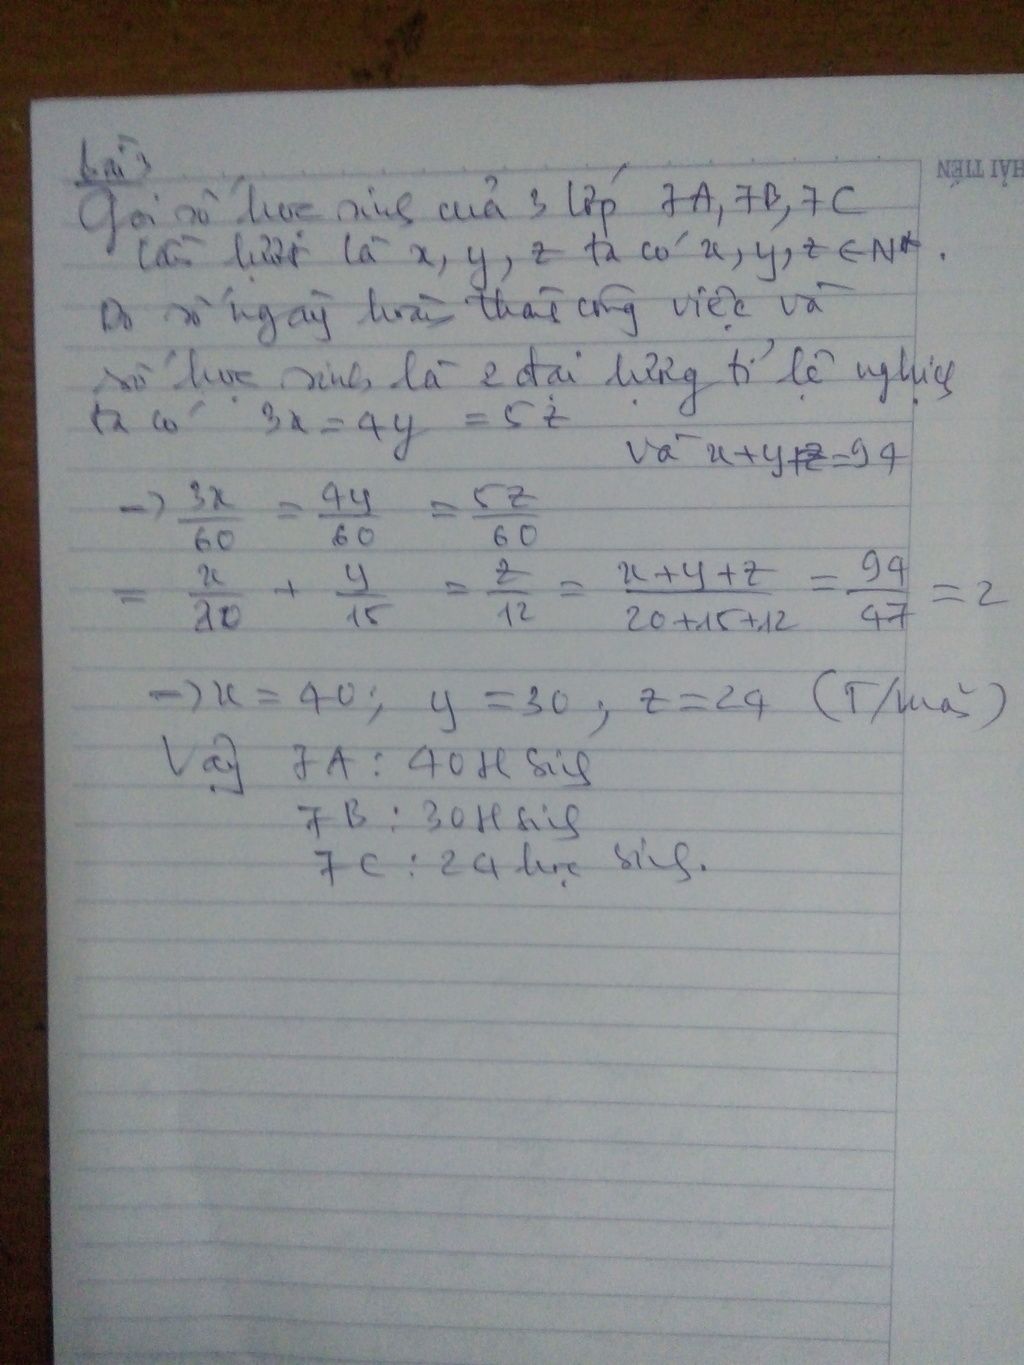 Bài 3
Gọi số học sinh của 3 lớp 7A, 7B, 7C
lần lượt là x, y, z ta có x, y, z ∈ N* .
Do số ngày hoàn thành công việc và
số học sinh là 2 đại lượng tỉ lệ nghịch
ta có 3x = 4y = 5z
và x+y+z=94
→ 3x/60 = 4y/60 = 5z/60
= x/20 + y/15 = z/12 = x+y+z/20+15+12 = 94/47 = 2
→ x = 40; y = 30; z = 24 (T/mãn)
Vậy 7A : 40 H sinh
7B : 30 H sinh
7C : 24 học sinh.
HẢI TIẾN